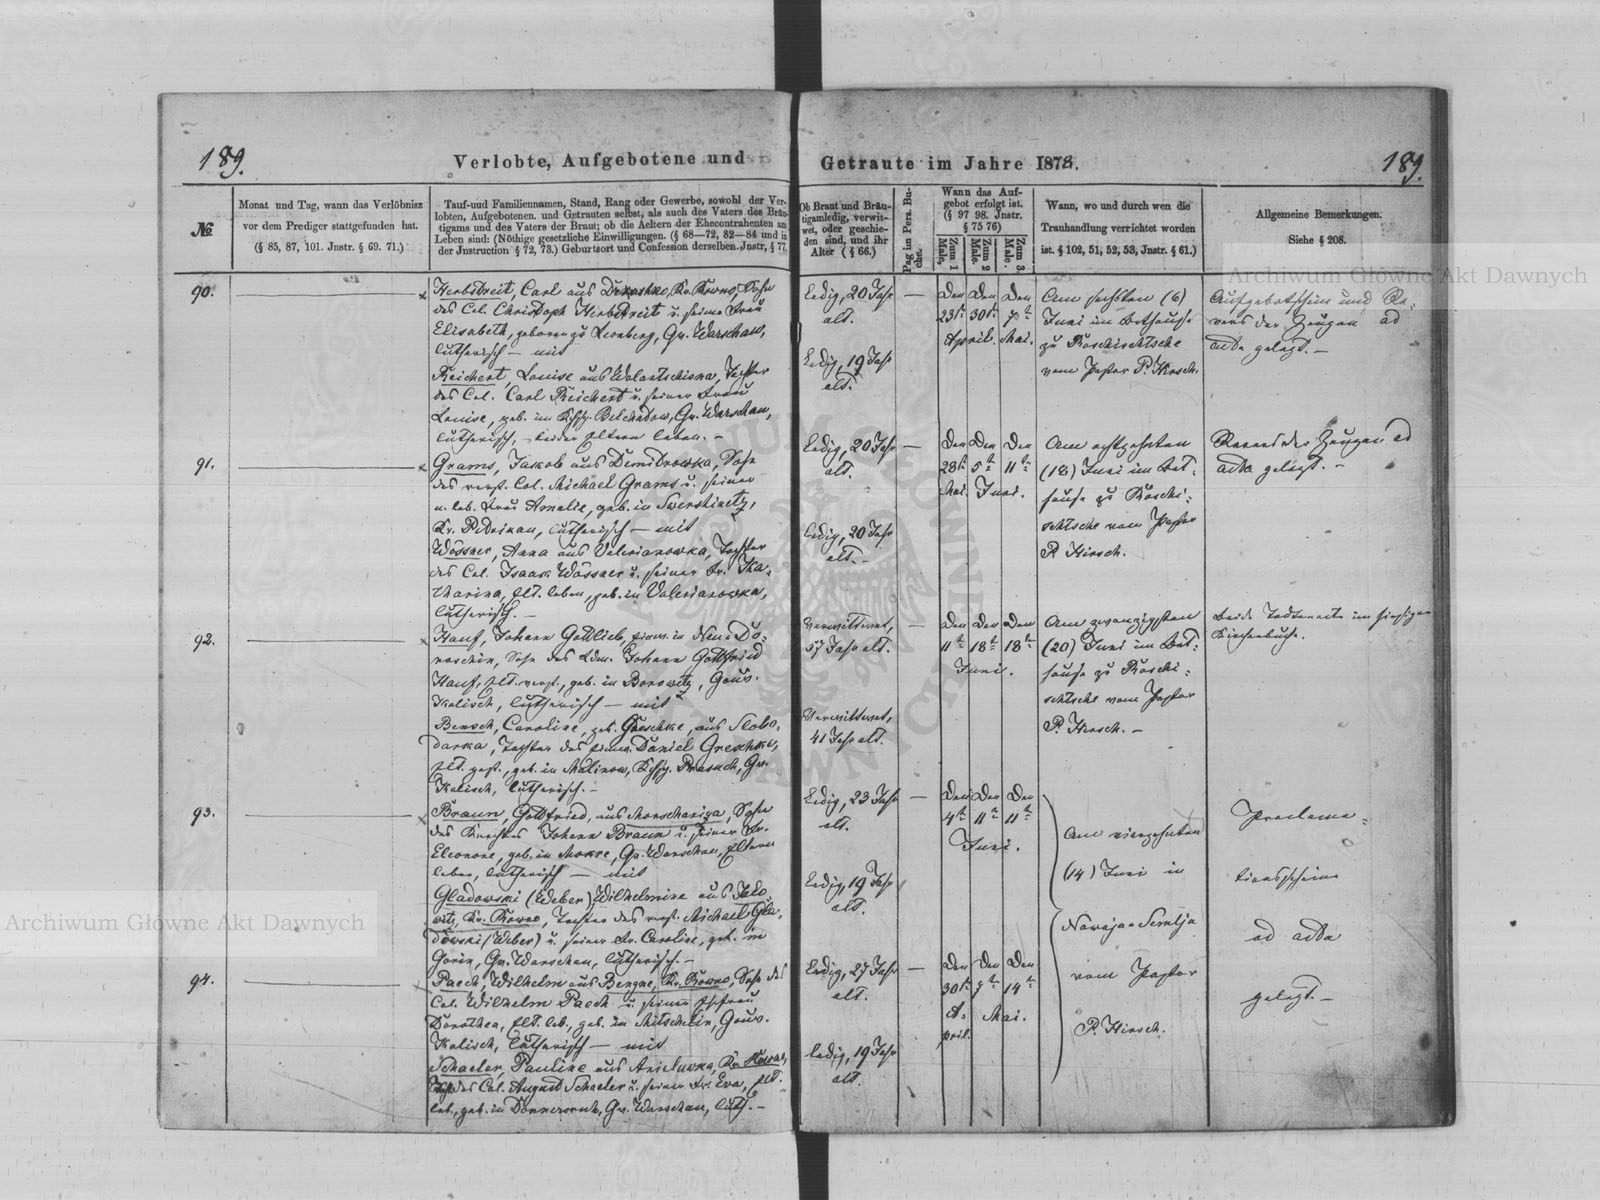 189.
Verlobte, Aufgebotene und
Getraute im Jahre 1878.
189.
№
Monat und Tag, wann das Verlöbnisz
vor dem Prediger stattgefunden hat.
(§ 85, 87, 101. Jnstr. § 69. 71.)
Tauf-uud Familiennamen, Stand, Rang oder Gewerbe, sowohl der Ver-
lobten, Aufgebotenen. und Getrauten selbst, als auch des Vaters des Bräu-
tigams und des Vaters der Braut; ob die Aeltern der Ehecontrahenten am
Leben sind: (Nöthige gesetzliche Einwilligungen. (§ 68—72, 82—84 und in
der Jnstruction § 72, 73.) Geburtsort und Confession derselben. Jnstr, § 77.
Ob Braut und Bräu-
tigam ledig, verwit-
wet, oder geschie-
den sind, und ihr
Alter (§ 66.)
Pag im Pers. Bu-
che.
Wann das Auf-
gebot erfolgt ist.
(§ 97 98. Jnstr.
§ 75 76)
Zum 1
Male,
Zum 2
Male.
Zum 3.
Male.
Wann, wo und durch wen die
Trauhandlung verrichtet worden
ist. § 102, 51, 52, 53, Jnstr. § 61.)
Allgemeine Bemerkungen.
Siehe § 208.
90.
Herbstreit, Carl aus Kr. Rowno, Sohn
des Col. Christoph Herbstreit u. seiner Frau
Elisabeth, geboren zu Leonberg, Gv. Warschau,
lutherisch — mit
Reichert, Louise aus Wolantschisna, Tochter
des Col. Carl Reichert u. seiner Frau
Louise, geb. im Kchsp. Belchadow, Gv. Warschau,
lutherisch, beider Eltern leben. —
Ledig, 20 Jahr
alt.
Ledig, 19 Jahr
alt.
—
Den Den Den
23t. 30t. 7t.
April. Mai.
Am sechsten (6)
Juni im Bethause
zu Roschischtsche
vom Pastor P. Hirsch.
Aufgebotschein und Re-
vers der Zeugen ad
acta gelegt. —
91.
Grams, Jakob aus Dimitrowka, Sohn
des verst. Col. Michael Grams u. seiner
n. leb. Frau Amalie, geb. in
lutherisch — mit
Wössner, Anna aus Valerianowka, Tochter
des Col. Isaak Wössner u. seiner Fr. Ka-
tharina, Elt. leben, geb. in Valerianowka,
lutherisch. —
Ledig, 20 Jahr
alt.
Ledig, 20 Jahr
alt. —
—
Den Den Den
28t. 5t. 11t.
Mai. Juni.
Am achtzehnten
(18) Juni im Bet-
hause zu Roschi-
schtsche vom Pastor
P. Hirsch.
Revers der Zeugen ad
acta gelegt. —
92.
Hauf, Johann Gottlieb, Einw. in Neu-Do-
roschin, Sohn des Ldm. Johann Gottfried
Hauf, Elt. verst., geb. in Borowitz, Gouv.
Kalisch, lutherisch — mit
Bensch, Caroline, geb. Greschke, aus Slobo-
darka, Tochter des Einw. Daniel Greschke,
Elt. gest., geb. in Malinow, Kchsp. Gv.
Kalisch, lutherisch. —
Verwittwet,
57 Jahr alt.
Verwittwet,
41 Jahr alt.
—
Den Den Den
11t. 18t. 18t.
Juni.
Am zwanzigsten
(20) Juni im Bet-
hause zu Roschi-
schtsche vom Pastor
P. Hirsch. —
Beide Todtenacte im hiesigen
Kirchenbuche.
93.
Braun, Gottfried, aus Sohn
des Knechtes Johann Braun u. seiner Fr.
Eleonore, geb. in Gv. Warschau, Eltern
leben, lutherisch — mit
Gladowski (Weber) Wilhelmine aus Jako-
witz, Kr. Rowno, Tochter des verst. Michael Gla-
dowski (Weber) u. seiner Fr. Caroline, geb. in
Gorin, Gv. Warschau, lutherisch. —
Ledig, 23 Jahr
alt.
Ledig, 19 Jahr
alt.
—
Den Den Den
4t. 11t. 11t.
Juni.
Am vierzehnten
(14) Juni in
Nowaja-Semlja
vom Pastor
P. Hirsch.
Proclama-
tionsscheine
ad acta
gelegt. —
94.
Paech, Wilhelm aus Kr. Rowno, Sohn des
Col. Wilhelm Paech u. seiner Ehefrau
Dorothea, Elt. leb., geb. in Mitschelin, Gouv.
Kalisch, lutherisch — mit
Schaeler, Pauline aus Kr. Rowno,
Tocht. des Col. August Schaeler u. seiner Fr. Eva, Elt.
leb., geb. in Gv. Warschau, luth. —
Ledig, 27 Jahr
alt.
Ledig, 19 Jahr
alt.
—
Den Den Den
30t. 7t. 14t.
A- Mai.
pril.
Archiwum Główne Akt Dawnych
Archiwum Główne Akt Dawnych